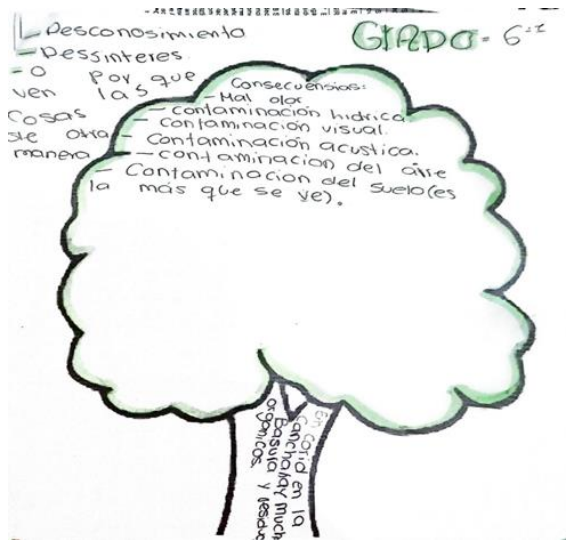 - Desconosimiento
- Dessinteres
- O por que
ven las
cosas
de otra
manera
GRADO- 6-1
Consecuensias:
- Mal olor
- contaminación hidrica
- Contaminación visual.
- Contaminación acustica.
- contaminacion del aire
- Contaminacion del suelo (es
la más que se ve).
en la
cancha hay much
Basura y residuo
organicos.